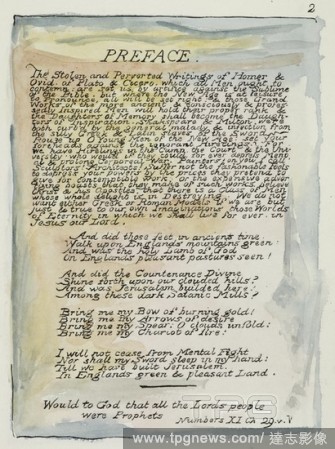 2
PREFACE.
The Stolen and Perverted Writings of Homer &
Ovid: of Plato & Cicero. which all Men ought to
contemn: are set up by artifice against the Sublime
of the Bible. but when the New Age is at leisure
to Pronounce; all will be set right: & those Grand
Works of the more ancient & consciously & profes-
sedly Inspired Men, will hold their proper rank, &
the Daughters of Memory shall become the Daugh-
ters of Inspiration. Shakspeare & Milton were
both curbd by the general malady & infection from
the silly Greek & Latin slaves of the Sword.
against the ignorant Hirelings! For
we have Hirelings in the Camp, the Court, & the Uni-
versity: who would if they could, for ever depress Mental
& prolong Corporeal War. Painters! on you I call!
to depress your powers by the prices they pretend to
give for contemptible works or the expensive adver-
tizing boasts that they make of such works; believe
Christ & his Apostles that there is a Class of Men
whose whole delight is in Destroying. We do not
want either Greek or Roman Models if we are but
just & true to our own Imaginations, those Worlds
of Eternity in which we shall live for ever; in
Jesus our Lord.
And did those feet in ancient time.
Walk upon Englands mountains green:
And was the holy Lamb of God
On Englands pleasant pastures seen!
And did the Countenance Divine
Shine forth upon our clouded hills?
And was Jerusalem builded here,
Among these dark Satanic Mills?
Bring me my Bow of burning gold:
Bring me my Arrows of desire:
Bring me my Spear: O clouds unfold:
Bring me my Chariot of fire!
I will not cease from Mental Fight
Nor shall my Sword sleep in my hand:
Till we have built Jerusalem,
In Englands green & pleasant Land.
Would to God that all the Lords people
were Prophets
Numbers XI Ch 29.v.
TPG
www.tpgnews.com/達志影像